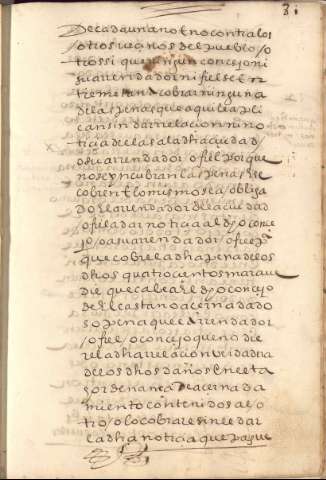 81
de cada uno e no contra los
otros vecinos del pueblo / o
trossi que ningun concejo ni
su arrendador ni fiel se en
tremetan a cobrar ninguna
de las penas que aqui le apli
can sin dar relacion ni no
ticia de ellas a la dha ciudad /
o su arrendador o fiel porque
no se encubran las penas / e si
cobren lo mismo sea obliga
do el arrendador de la ciudad
o fiel a dar noticia al dho conce
jo / o a su arrendador / o fiel
que cobre la dha pena de los
dhos quatrocientos marave
dis que cabe al dho concejo
de el castano acernadado
so pena que el arrendador
/ o fiel / o concejo que no die
re la dha relacion verdadera
de los dhos daños en esta
hordenança de acernada
miento contenidos al o
tro / o lo cobrare sin le dar
la dha noticia que pague